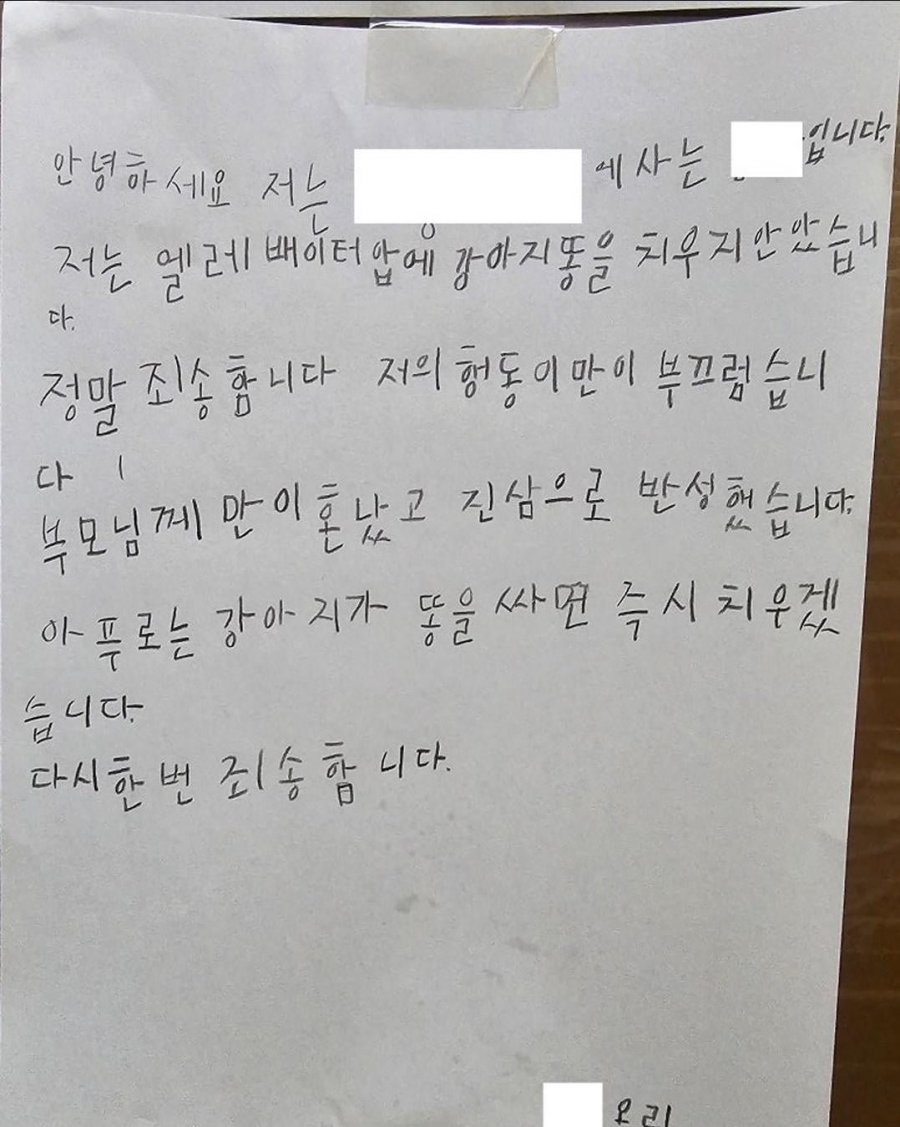 안녕하세요 저는 에사는 입니다.
저는 엘레배이터압에 강아지똥을 치우지안았습니
다.
정말 죄송함니다 저의헹동이만이 부끄럽습니
다
부모님께 만이혼났고 진심으로 반성했습니다.
아푸로는 강아지가 똥을 싸면 즉시 치우겠
습니다.
다시한번 죄송함니다.
올림